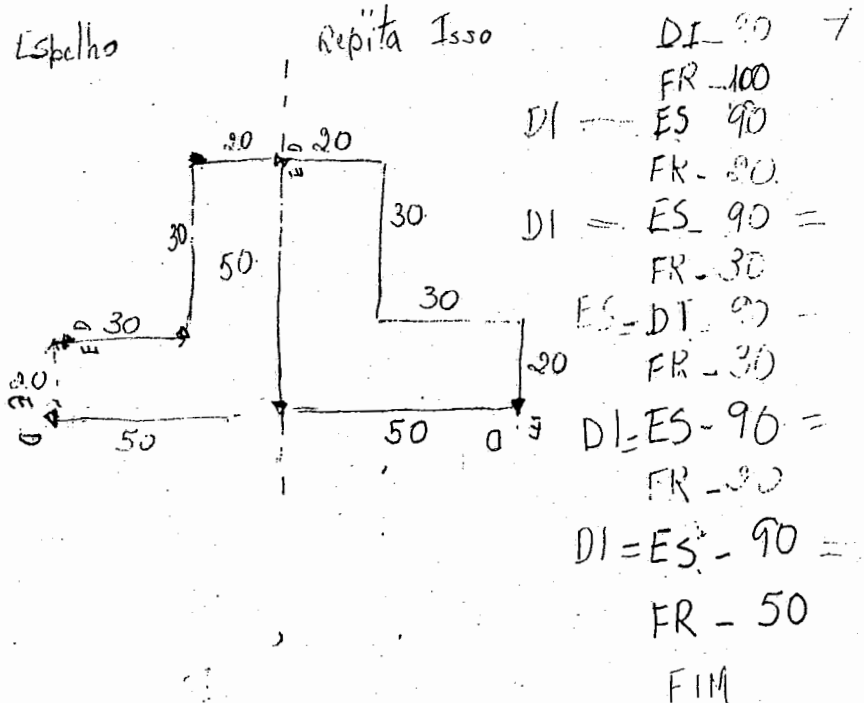 Espelho
Repïta Isso
20 20
30
50
30
30
30
20
E D
E D
20
50
50
D E
DI 90
FR - 100
DI — ES 90
FR - 20
DI = ES - 90 =
FR - 30
ES = DI 90 -
FR - 30
DI = ES - 90 =
FR - 20
DI = ES - 90 =
FR - 50
FIM